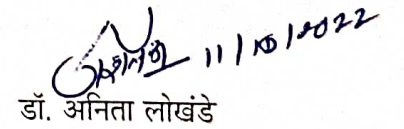 11/10/2022
डॉ. अनिता लोखंडे